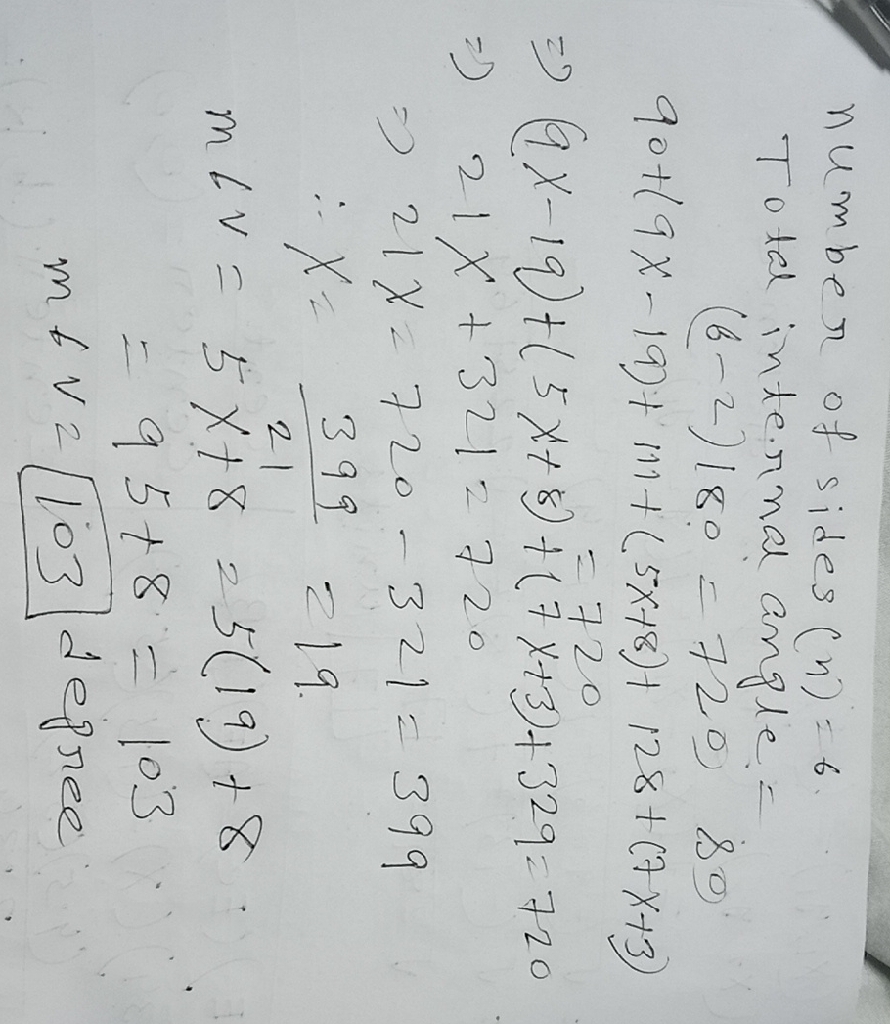 number of sides (n) = 6.
Total internal angle =
(6-2)180 = 720 80
90+(9x-19)+111+(5x+8)+128+(7x+3)
= 720
=) (9x-19)+(5x+8)+(7x+3)+329=720
=) 21x+321=720
=) 21x=720-321=399
∴ x= 399/21 = 19.
m∠N = 5x+8 = 5(19)+8
= 95+8 = 103
m∠N = 103 degree